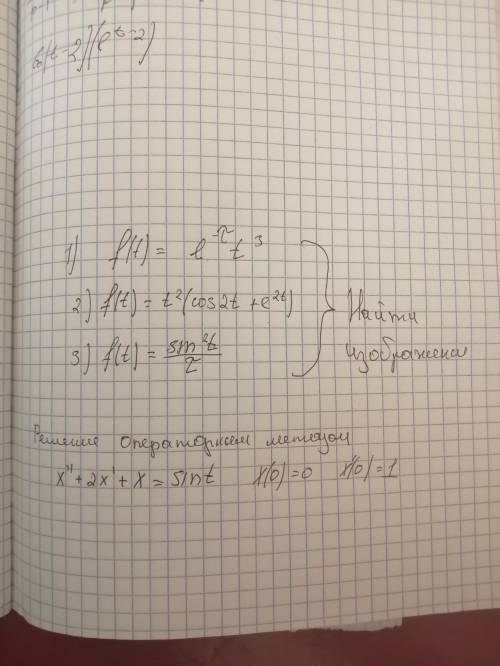 1) f(t) = e^-τ t^3
2) f(t) = t^2(cos2t + e^2t)
3) f(t) = sin^2t / τ
Найти
изображения
Решение операторным методом
x'' + 2x' + x = sint X(0)=0 X'(0)=1